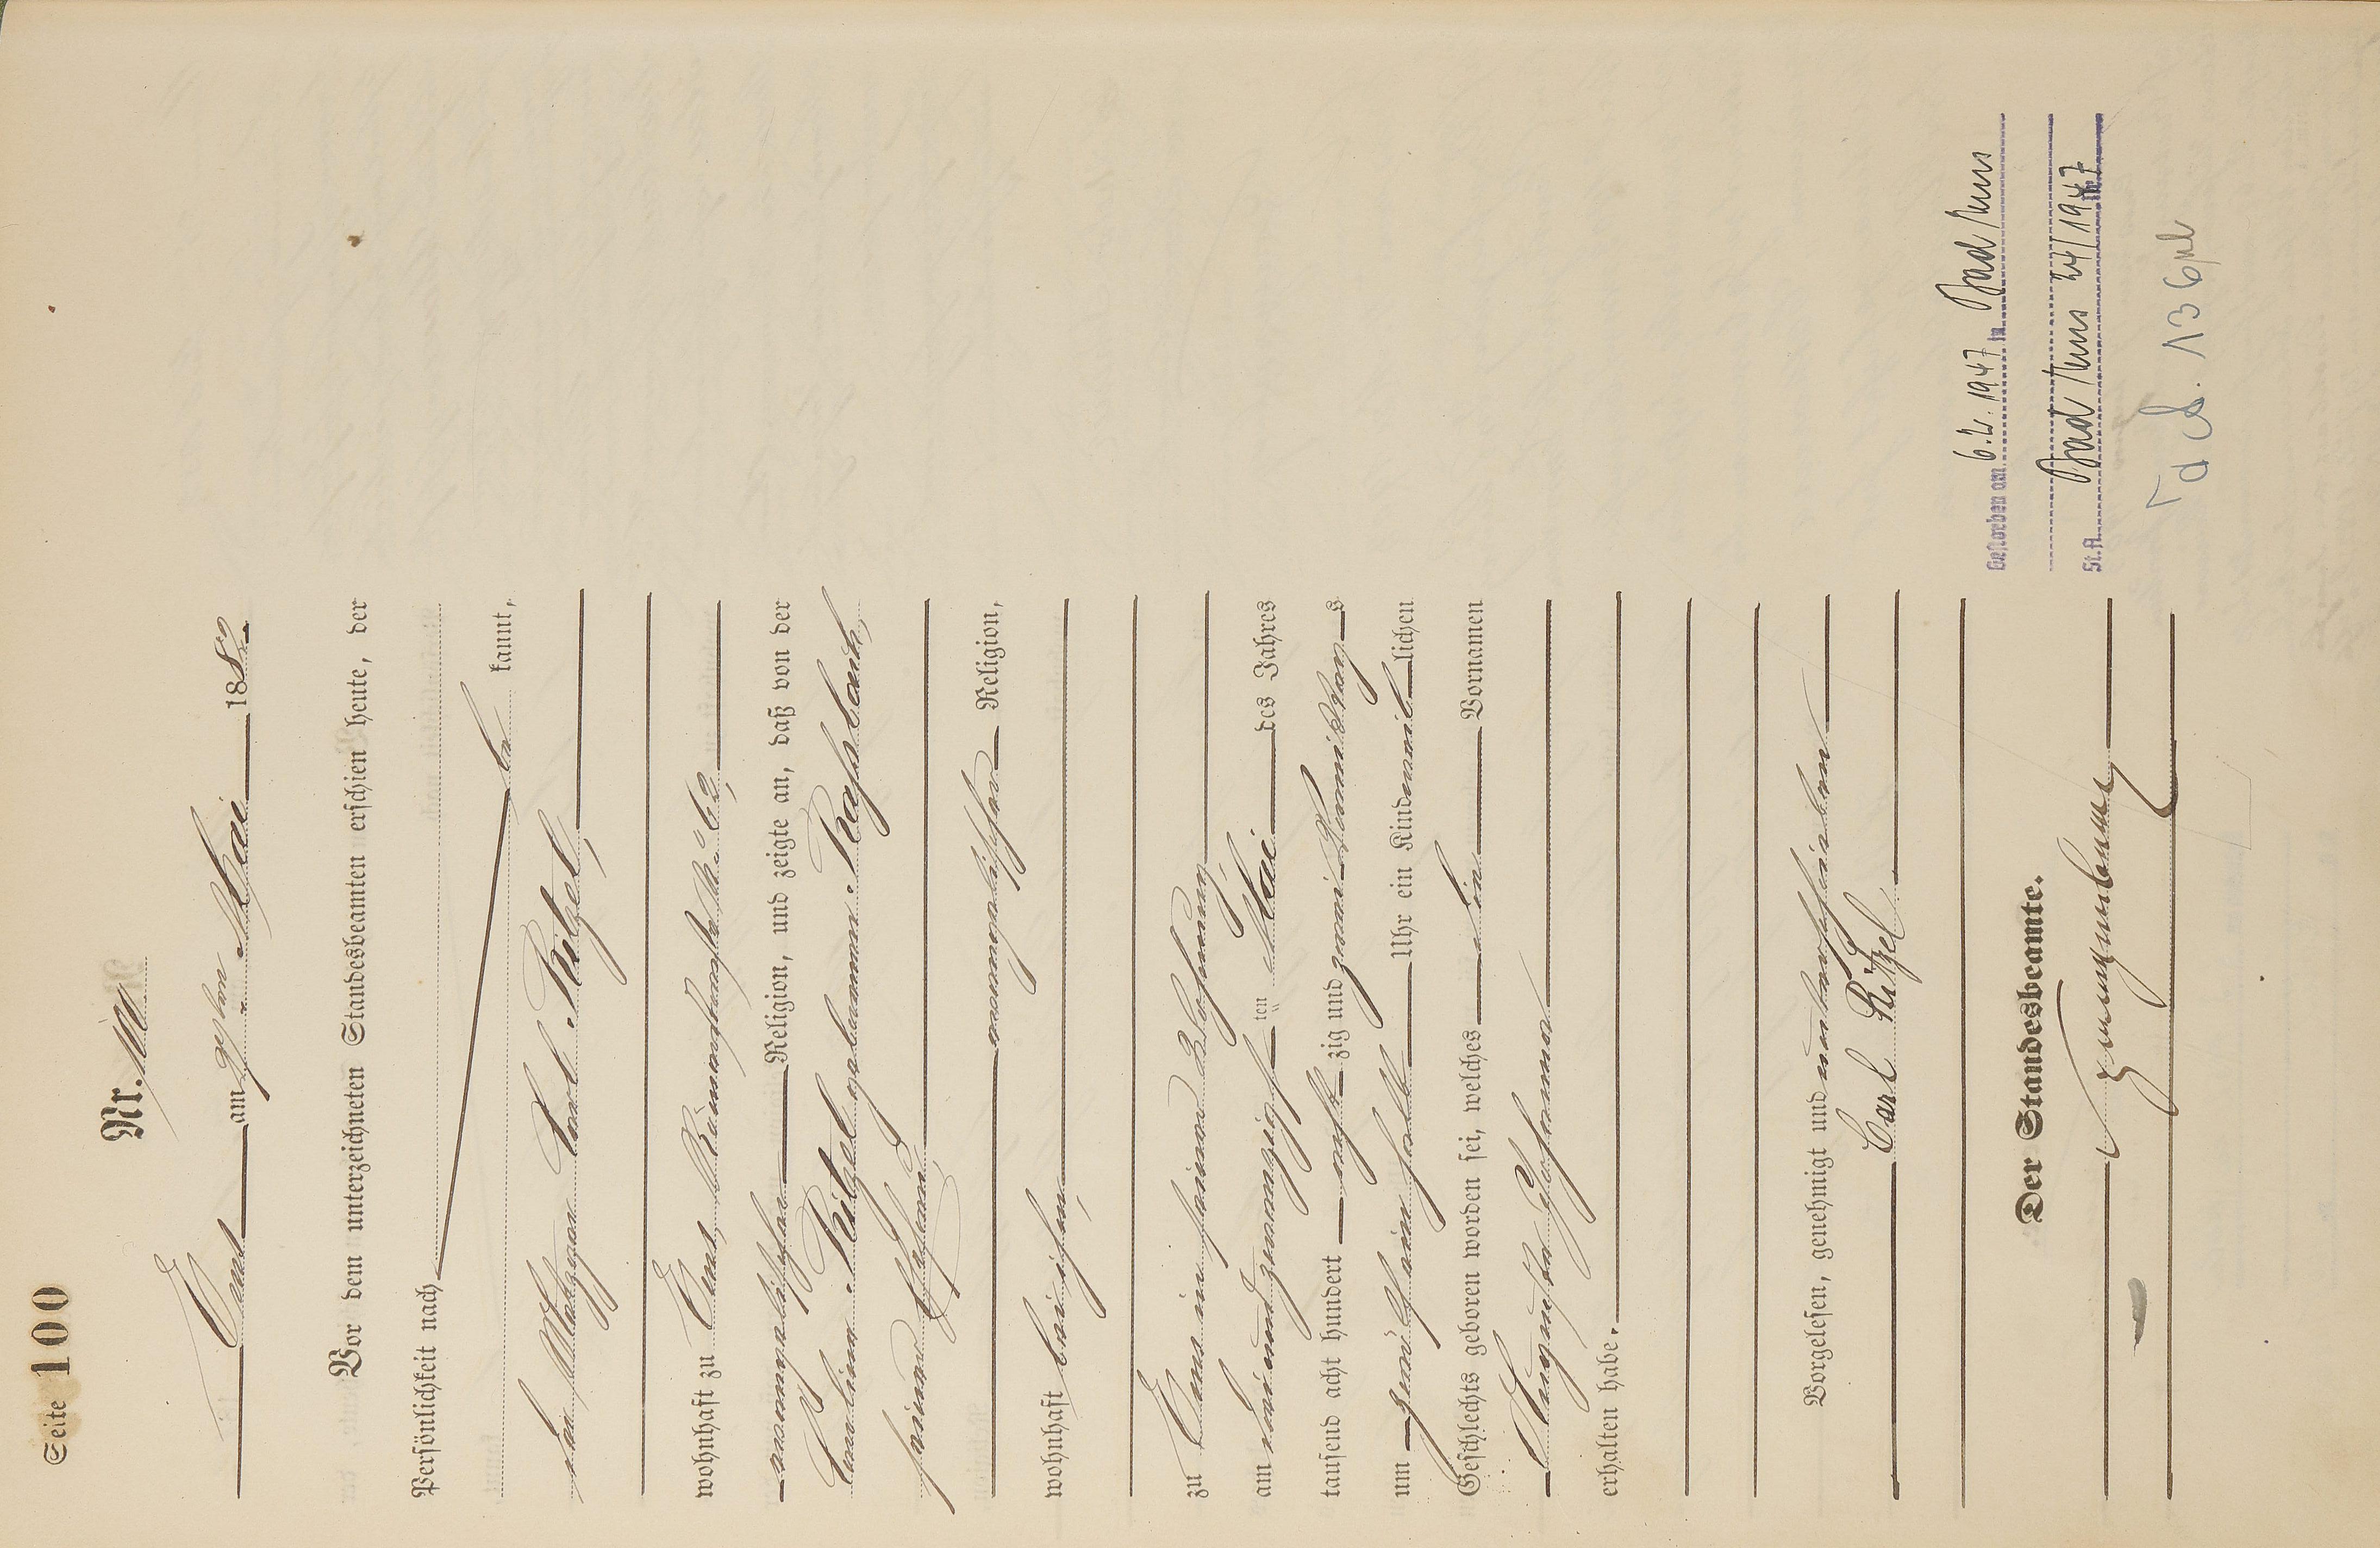 Seite 100
Nr. 100
Ems am 29ten Mai 1882
Vor dem unterzeichneten Standesbeamten erschien heute, der
Persönlichkeit nach
be kannt,
der Metzger Carl Ritzel,
wohnhaft zu Ems, Römerstraße No. 62,
evangelischer Religion, und zeigte an, daß von der
Caroline Ritzel geborenen Raßbach,
seiner Ehefrau,
evangelischer Religion,
wohnhaft bei ihm,
zu Ems in seiner Wohnung,
am dreiundzwanzigsten Mai des Jahres
tausend acht hundert acht zig und zwei Nachmittags
um Uhr ein Kind weiblichen
Geschlechts geboren worden sei, welches die Vornamen
Auguste Johanna
erhalten habe.
Vorgelesen, genehmigt und unterschrieben
Carl Ritzel
Der Standesbeamte.
Gestorben am 6.2.1947 in Bad Ems
St.A. Bad Ems 24/1947